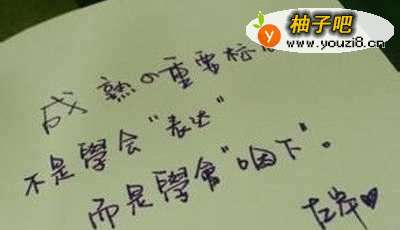 柚子吧
www.youzi8.cn
成熟の重要标
不是學会“表达”
而是學會“咽下”。
左岸♥